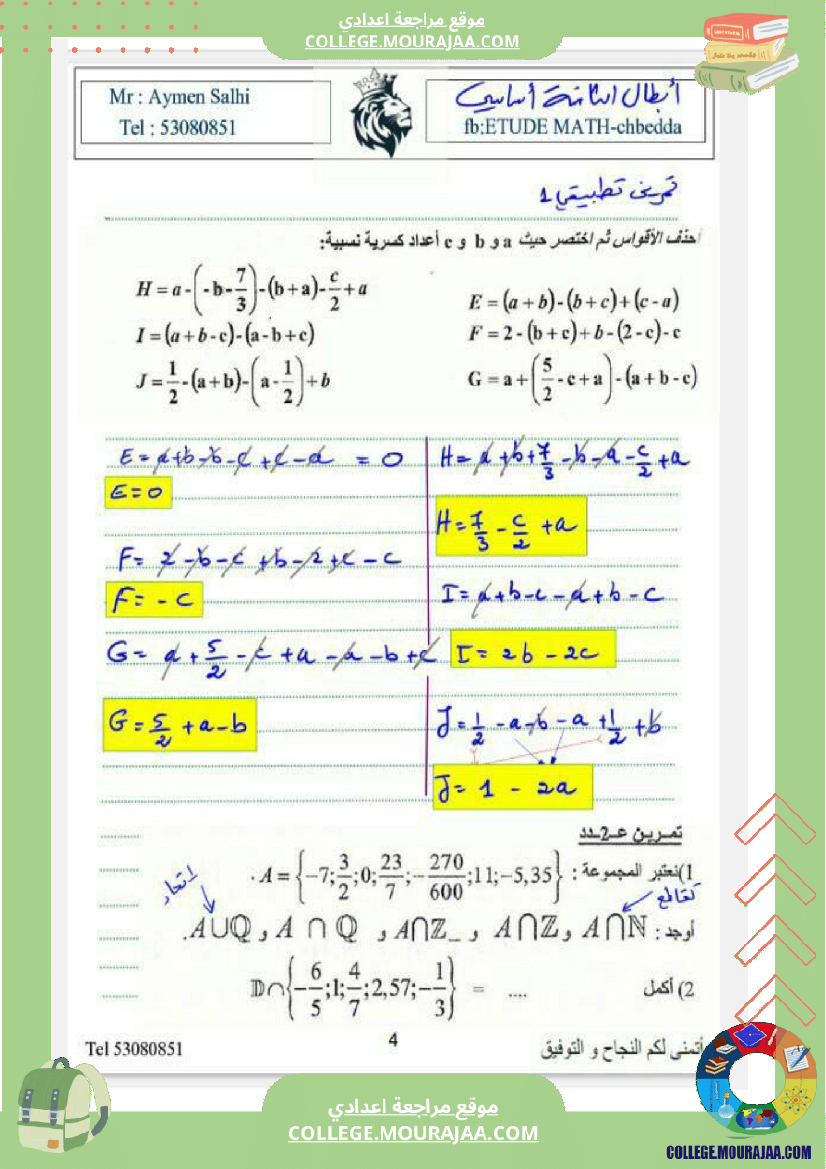 موقع مراجعة اعدادي
COLLEGE.MOURAJAA.COM
Mr : Aymen Salhi
Tel : 53080851
أبطال الثامنة أساسي
fb:ETUDE MATH-chbedda
تمرين تطبيقي 1
أحذف الأقواس ثم اختصر حيث a و b و c أعداد كسرية نسبية:
E = (a + b) - (b + c) + (c - a)
F = 2 - (b + c) + b - (2 - c) - c
G = a + (5/2 - c + a) - (a + b - c)
H = a - (-b - 7/3) - (b + a) - c/2 + a
I = (a + b - c) - (a - b + c)
J = 1/2 - (a + b) - (a - 1/2) + b
E = a + b - b - c + c - a = 0
E = 0
F = 2 - b - c + b - 2 + c - c
F = - c
G = a + 5/2 - c + a - a - b + c
G = 5/2 + a - b
H = a + b + 7/3 - b - a - c/2 + a
H = 7/3 - c/2 + a
I = a + b - c - a + b - c
I = 2b - 2c
J = 1/2 - a - b - a + 1/2 + b
J = 1 - 2a
تمرين عـ2ـدد
1) نعتبر المجموعة : A = {-7; 3/2; 0; 23/7; - 270/600; 11; -5,35} .
اتحاد
تقاطع
أوجد : A∩ℕ و A∩ℤ و A∩ℤ_ و A ∩ ℚ و A∪ℚ.
2) أكمل 𝔻∩{-6/5; 1; 4/7; 2,57; -1/3} = ....
Tel 53080851
4
أتمنى لكم النجاح و التوفيق
موقع مراجعة اعدادي
COLLEGE.MOURAJAA.COM
COLLEGE.MOURAJAA.COM